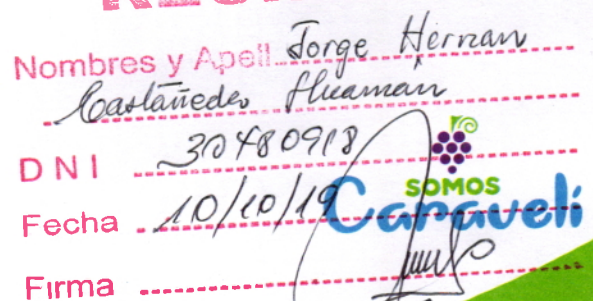 Nombres y Apell. Jorge Hernan
Castañeda Huaman
DNI 30480918
Fecha 10/10/19
SOMOS
Caravelí
Firma